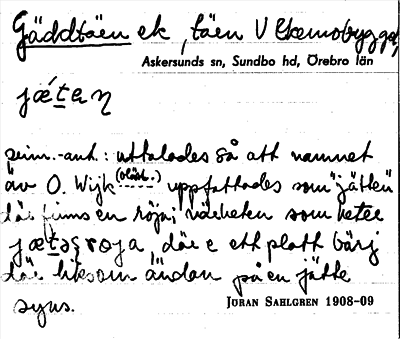 Gäddtäen ek, täen V Ekenobygget,
Askersunds sn, Sundbo hd, Örebro län
jǽtən
seim.-ant.: uttalades så att namnet
av O. Wijk uppfattades som "jätten"
där finns en röja i närheten som heter
jætəsroja, där e ett platt bärj
där liksom ändan på en jätte
syns.
JÖRAN SAHLGREN 1908–09